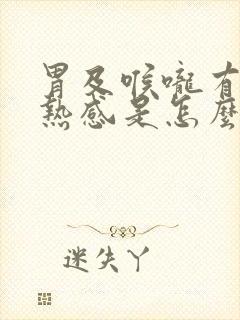 胃及喉嚨有
熱感是怎麼
迷失丫